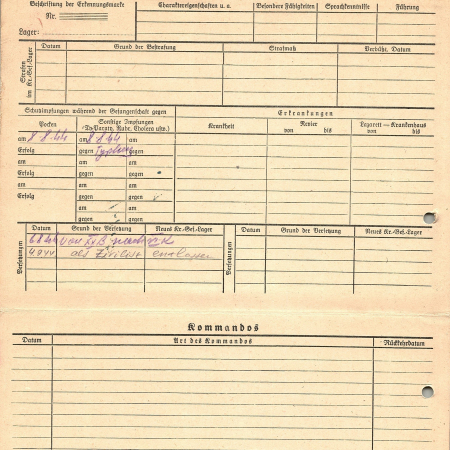 Beschriftung der Erkennungsmarke
Nr.
Lager:
Charaktereigenschaften u. a.
Besondere Fähigkeiten
Sprachkenntnisse
Führung
Strafen im Kr.-Gef.-Lager
Datum
Grund der Bestrafung
Strafmaß
Verbüßt, Datum
Schutzimpfungen während der Gefangenschaft gegen
Erkrankungen
Pocken
Sonstige Impfungen
(Ty.-Paraty., Ruhr, Cholera usw.)
Krankheit
Revier
von bis
Lazarett — Krankenhaus
von bis
am 8.8.44 am 8.8.44 am
Erfolg gegen Typhus gegen
am am am
Erfolg gegen gegen
am am am
Erfolg gegen gegen
am am
gegen gegen
Versetzungen
Datum Grund der Versetzung Neues Kr.-Gef.-Lager
Datum Grund der Versetzung Neues Kr.-Gef.-Lager
Versetzungen
von
als Zivilist entlassen
Kommandos
Datum
Art des Kommandos
Rückkehrdatum